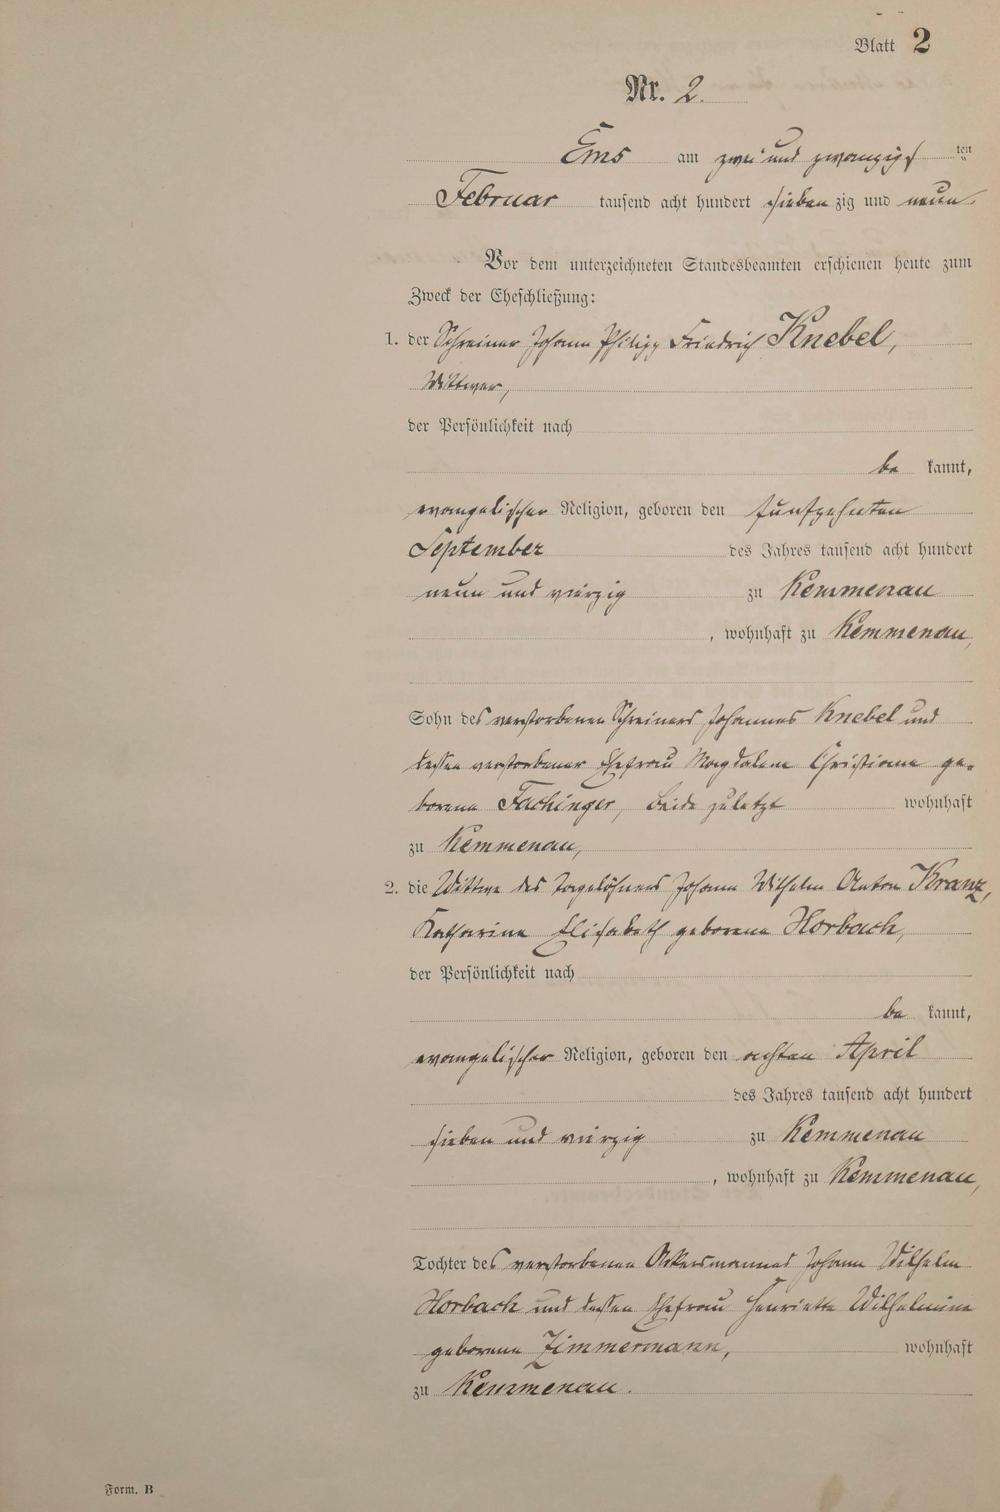 Blatt 2
Nr. 2.
Ems am zwei und zwanzigsten
Februar tausend acht hundert siebenzig und neun.
Vor dem unterzeichneten Standesbeamten erschienen heute zum
Zweck der Eheschließung:
1. der Schreiner Johann Philipp Friedrich Knebel,
Wittwer,
der Persönlichkeit nach
be kannt,
evangelischer Religion, geboren den fünfzehnten
September des Jahres tausend acht hundert
neun und vierzig zu Kemmenau
, wohnhaft zu Kemmenau,
Sohn des verstorbenen Schreiners Johannes Knebel und
dessen verstorbener Ehefrau Magdalene Christiane ge-
borene Fachinger, beide zuletzt wohnhaft
zu Kemmenau,
2. die Wittwe des Tagelöhners Johann Wilhelm Anton Kranz,
Katharine Elisabeth geborene Horbach,
der Persönlichkeit nach
be kannt,
evangelischer Religion, geboren den achten April
des Jahres tausend acht hundert
sieben und vierzig zu Kemmenau
, wohnhaft zu Kemmenau,
Tochter des verstorbenen Ackersmannes Johann Wilhelm
Horbach und dessen Ehefrau Henriette Wilhelmine
geborene Zimmermann, wohnhaft
zu Kemmenau.
Form. B